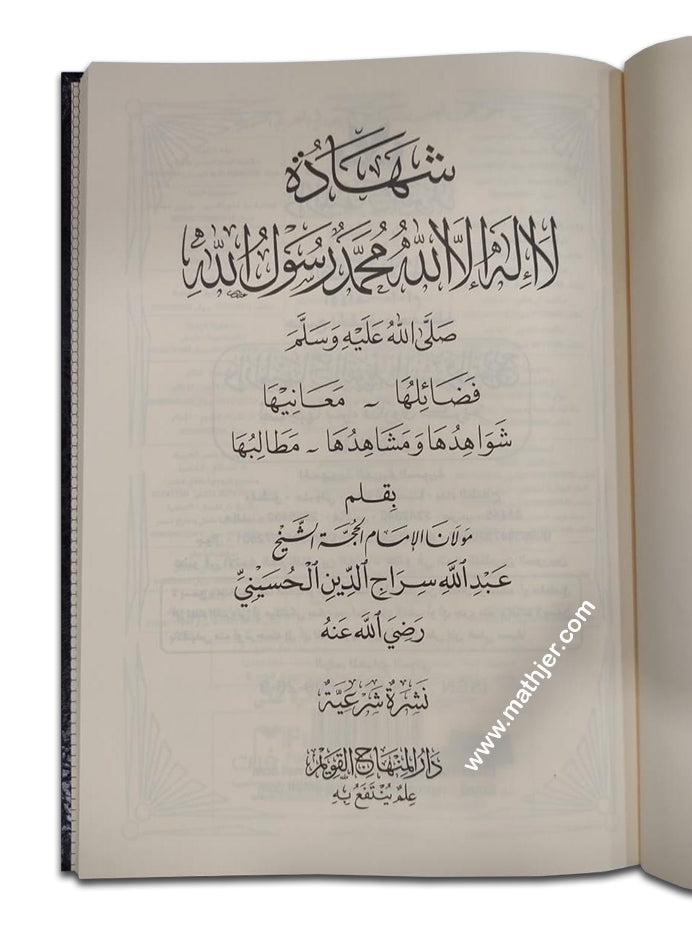 شَهَادَةُ
لَا إِلَهَ إِلَّا اللهُ مُحَمَّدٌ رَسُوْلُ اللهِ
صَلَّى اللهُ عَلَيْهِ وَسَلَّمَ
فَضَائِلُهَا - مَعَانِيْهَا
شَوَاهِدُهَا وَمَشَاهِدُهَا - مَطَالِبُهَا
بِقَلَم
مَوْلَانَا الإِمَام الحُجَّة الشَّيْخ
عَبْدِ اللَّهِ سِرَاجِ الدِّينِ الْحُسَيْنِيِّ
رَضِيَ اللَّهُ عَنْهُ
نَشْرَةٌ شَرْعِيَّةٌ
دَارُ المِنْهَاجِ القَوِيْمِ
عِلْمٌ يُنْتَفَعُ بِهِ
www.mathjer.com